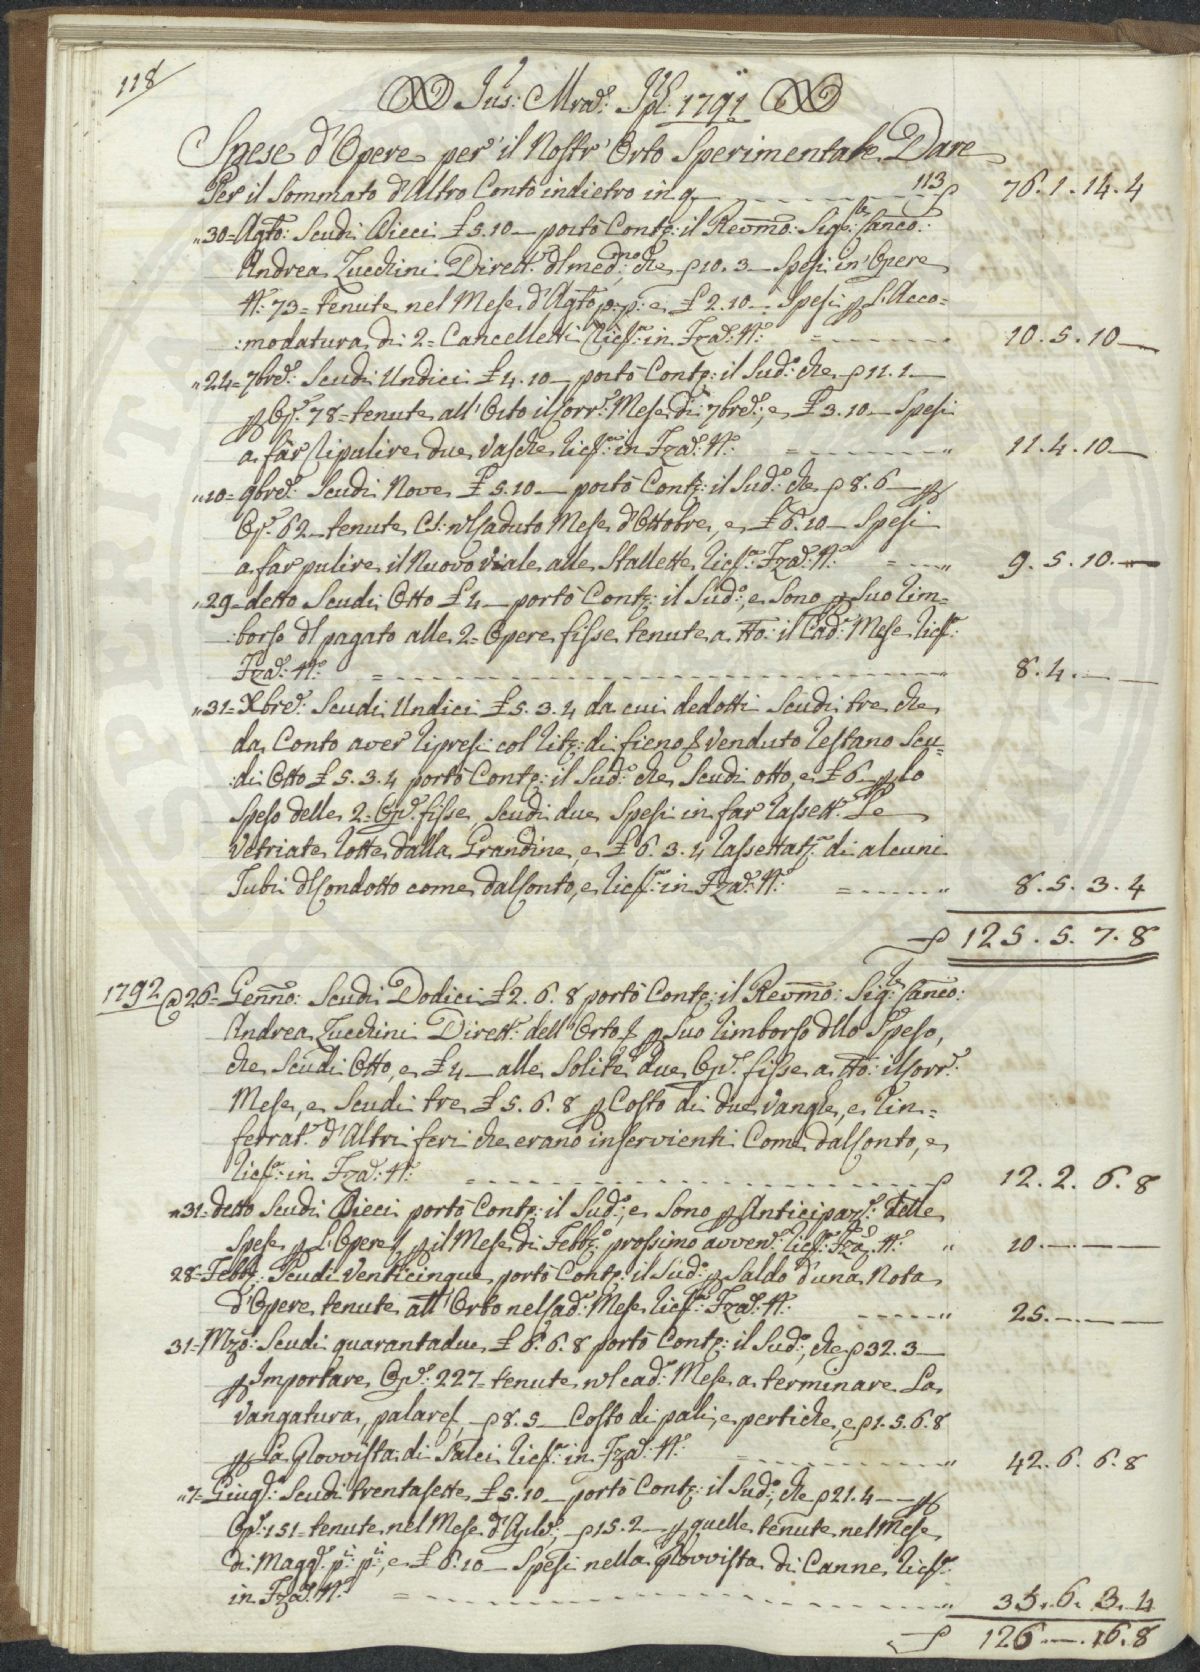 118
Jus: Mrad: Spl: 1791
Spese d'Opere per il Nostr'Orto Sperimentale Dare
Per il Sommato d'Altro Conto indietro in q. 113 76.1.14.4
"30= Agto: Scudi Dieci £ 5.10 — portò Contz: il Revmo: Sigr: Canco:
Andrea Zucchini Dirett: dl medmo: che ꝭ 10.3 — Spesi in Opere
N: 73= tenute nel Mese d'Agto p: p: e £ 2.10 — Spesi p L'Acco=
:modatura di 2= Cancelletti Ricta: in Fza: N: = 10.5.10 —
"24= 7bre: Scudi Undici £ 4.10 — portò Contz: il Sudo: che ꝭ 11.1 —
p Op: 78= tenute all'Orto il Corr: Mese di 7bre:, e £ 3.10 — Spesi
a fàr Ripulire due Vasche Ricta: in Fza: N: = " 11.4.10 —
"10= 9bre: Scudi Nove £ 5.10 — portò Contz: il Sudo: che ꝭ 8.6 — p
Op: 62 — tenute nl Caduto Mese d'Ottobre, e £ 6.10 — Spesi
a fàr pulire il Nuovo Viale alle Stallette Ricta: Fza: N: = " 9.5.10. —
"29= detto Scudi Otto £ 4 — portò Contz: il Sudo:, e Sono p Suo Rim=
:borso dl pagato alle 2= Opere fisse tenute a tto: il Cad: Mese Ricta:
Fza: N: = " 8.4. — —
"31= Xbre: Scudi Undici £ 5.3.4 da cui dedotti Scudi tre che
da Conto aver Ripresi col Ritz: di fieno Venduto Restano Scu=
:di Otto £ 5.3.4 portò Contz: il Sudo: che Scudi otto, e £ 6 — p lo
Speso delle 2= Op: fisse, Scudi due Spesi in far Rassett: Le
Vetriate Rotte dalla Grandine, e £ 6.3.4 Rassettatz: di alcuni
Tubi dl Condotto come dal Conto, e Ricta: in Fza: N: = " 8.5.3.4
ꝭ 125.5.7.8
1792 @ 26= Genno: Scudi Dodici £ 2.6.8 portò Contz: il Revmo: Sigr: Canco:
Andrea Zucchini Dirett: dell'Orto p Suo Rimborso dllo Speso,
che Scudi Otto, e £ 4 — alle Solite due Op: fisse a tto: il Corr:
Mese, e Scudi tre £ 5.6.8 p Costo di due Vanghe, e Rin=
ferrat: d'Altri feri che erano inservienti Come dal Conto, e
Ricta: in Fza: N: ꝭ 12.2.6.8
"31= detto Scudi Dieci portò Contz: il Sudo:, e Sono p Anticipaz: delle
Spese p L'Opere p il Mese di Febbo: prossimo avven: Ricta: Fza: N: " 10. — — —
28= Febbo: Scudi Venticinque portò Contz: il Sudo: p Saldo d'una Nota
d'Opere tenute all'Orto nel Cad: Mese Ricta: Fza: N: " 25. — — —
31= Mzo: Scudi quarantadue £ 6.6.8 portò Contz: il Sudo:, che ꝭ 32.3 —
p Importare Op: 227= tenute nl cad: Mese a terminare La
Vangatura, palare, ꝭ 8.5 — Costo di pali, e pertiche, e ꝭ 1.5.6.8
p La Provvista di Salci Ricta: in Fza: N: = " 42.6.6.8
"7= Giugo: Scudi trentasette £ 5.10 — portò Contz: il Sudo:, che ꝭ 21.4 — — p
Op: 151= tenute nel Mese d'Aple:, ꝭ 15.2 — p quelle tenute nel Mese
di Magg: p: p:, e £ 6.10 — Spesi nella Provvista di Canne Ricta:
in Fza: N: = " 35.6.3.4
ꝭ 126 — .16.8